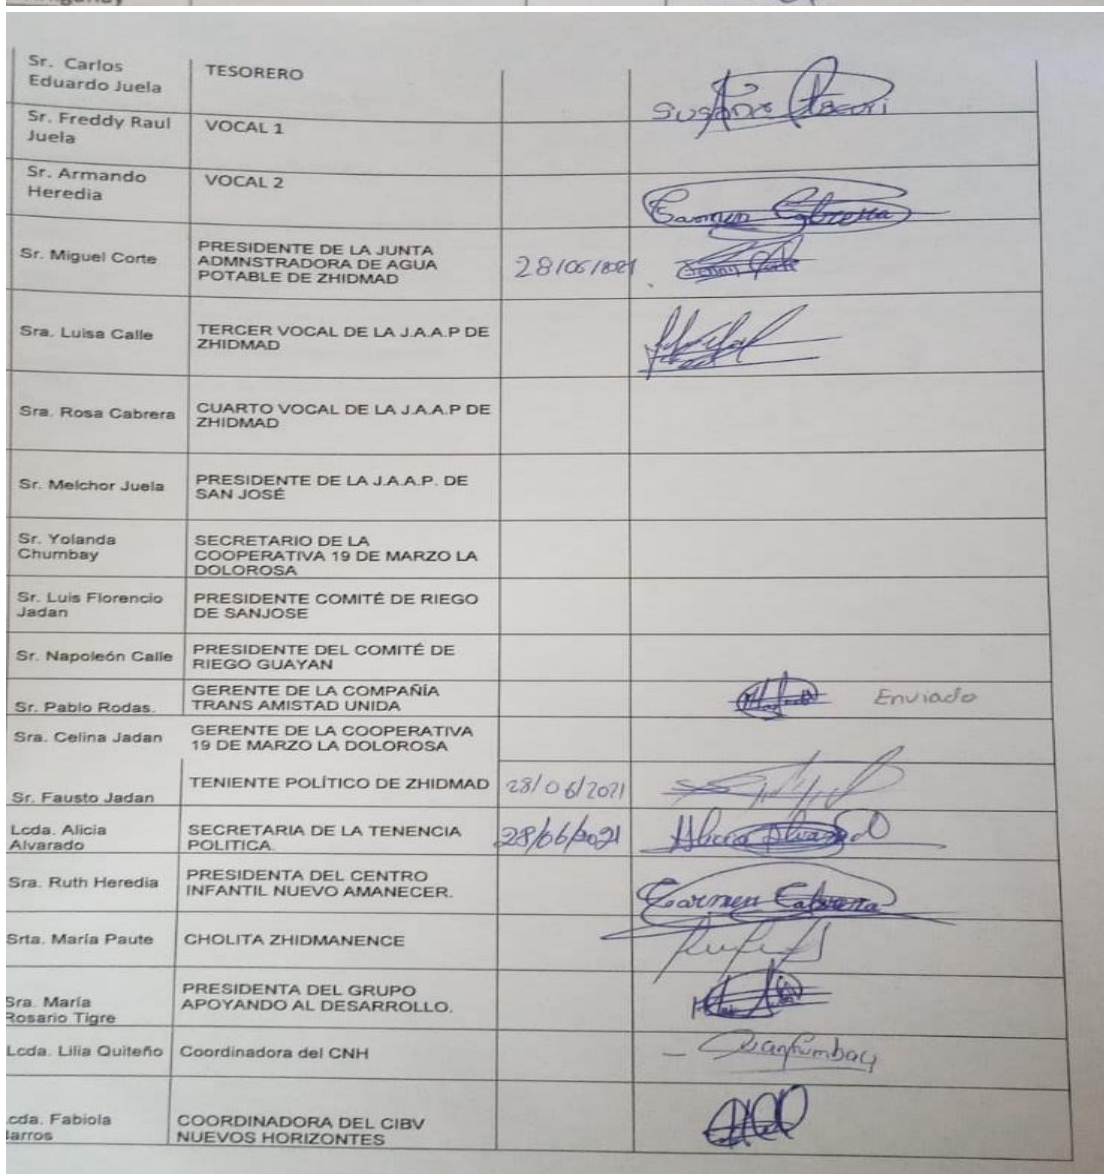 Sr. Carlos
Eduardo Juela
TESORERO
Sr. Freddy Raul
Juela
VOCAL 1
Sr. Armando
Heredia
VOCAL 2
Carmen Cabrera
Sr. Miguel Corte
PRESIDENTE DE LA JUNTA
ADMNSTRADORA DE AGUA
POTABLE DE ZHIDMAD
28/06/2021
Sra. Luisa Calle
TERCER VOCAL DE LA J.A.A.P DE
ZHIDMAD
Sra. Rosa Cabrera
CUARTO VOCAL DE LA J.A.A.P DE
ZHIDMAD
Sr. Melchor Juela
PRESIDENTE DE LA J.A.A.P. DE
SAN JOSÉ
Sr. Yolanda
Chumbay
SECRETARIO DE LA
COOPERATIVA 19 DE MARZO LA
DOLOROSA
Sr. Luis Florencio
Jadan
PRESIDENTE COMITÉ DE RIEGO
DE SANJOSE
Sr. Napoleón Calle
PRESIDENTE DEL COMITÉ DE
RIEGO GUAYAN
Sr. Pablo Rodas.
GERENTE DE LA COMPAÑÍA
TRANS AMISTAD UNIDA
Enviado
Sra. Celina Jadan
GERENTE DE LA COOPERATIVA
19 DE MARZO LA DOLOROSA
Sr. Fausto Jadan
TENIENTE POLÍTICO DE ZHIDMAD
28/06/2021
Lcda. Alicia
Alvarado
SECRETARIA DE LA TENENCIA
POLITICA.
28/06/2021
Alicia Alvarado
Sra. Ruth Heredia
PRESIDENTA DEL CENTRO
INFANTIL NUEVO AMANECER.
Carmen Cabrera
Srta. María Paute
CHOLITA ZHIDMANENCE
Sra. María
Rosario Tigre
PRESIDENTA DEL GRUPO
APOYANDO AL DESARROLLO.
Lcda. Lilia Quiteño
Coordinadora del CNH
cda. Fabiola
arros
COORDINADORA DEL CIBV
NUEVOS HORIZONTES